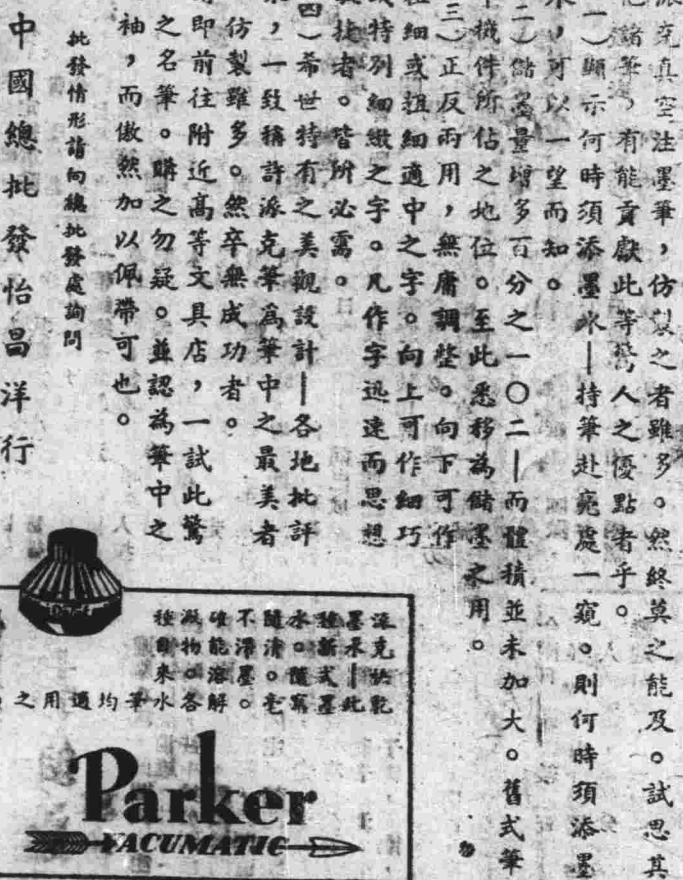 派克真空注墨筆，仿製之者雖多。然終莫之能及。試思其
諸筆，有能貢獻此等驚人之優點者乎。
一）顯示何時須添墨水—持筆赴亮處一窺。則何時須添墨
水，可以一望而知。
二）儲墨量增多百分之一〇二—而體積並未加大。舊式筆
機件所佔之地位。至此悉移為儲墨之用。
三）正反兩用，無庸調整。向下可作
粗細或粗細適中之字。向上可作細巧
或特別細緻之字。凡作字迅速而思想
捷者。皆所必需。
四）希世特有之美觀設計—各地批評
，一致稱許派克筆爲筆中之最美者
仿製雖多。然卒無成功者。
即前往附近高等文具店，一試此驚
之名筆。購之勿疑。並認為筆中之
袖，而傲然加以佩帶可也。
批發情形請向總批發處詢問
中國總批發怡昌洋行
派克快乾
墨水—此
種新式墨
水。隨寫
隨清。毫
不滯墨。
確能溶解
澱物。各
種自來水
筆均適用之
Parker
VACUMATIC